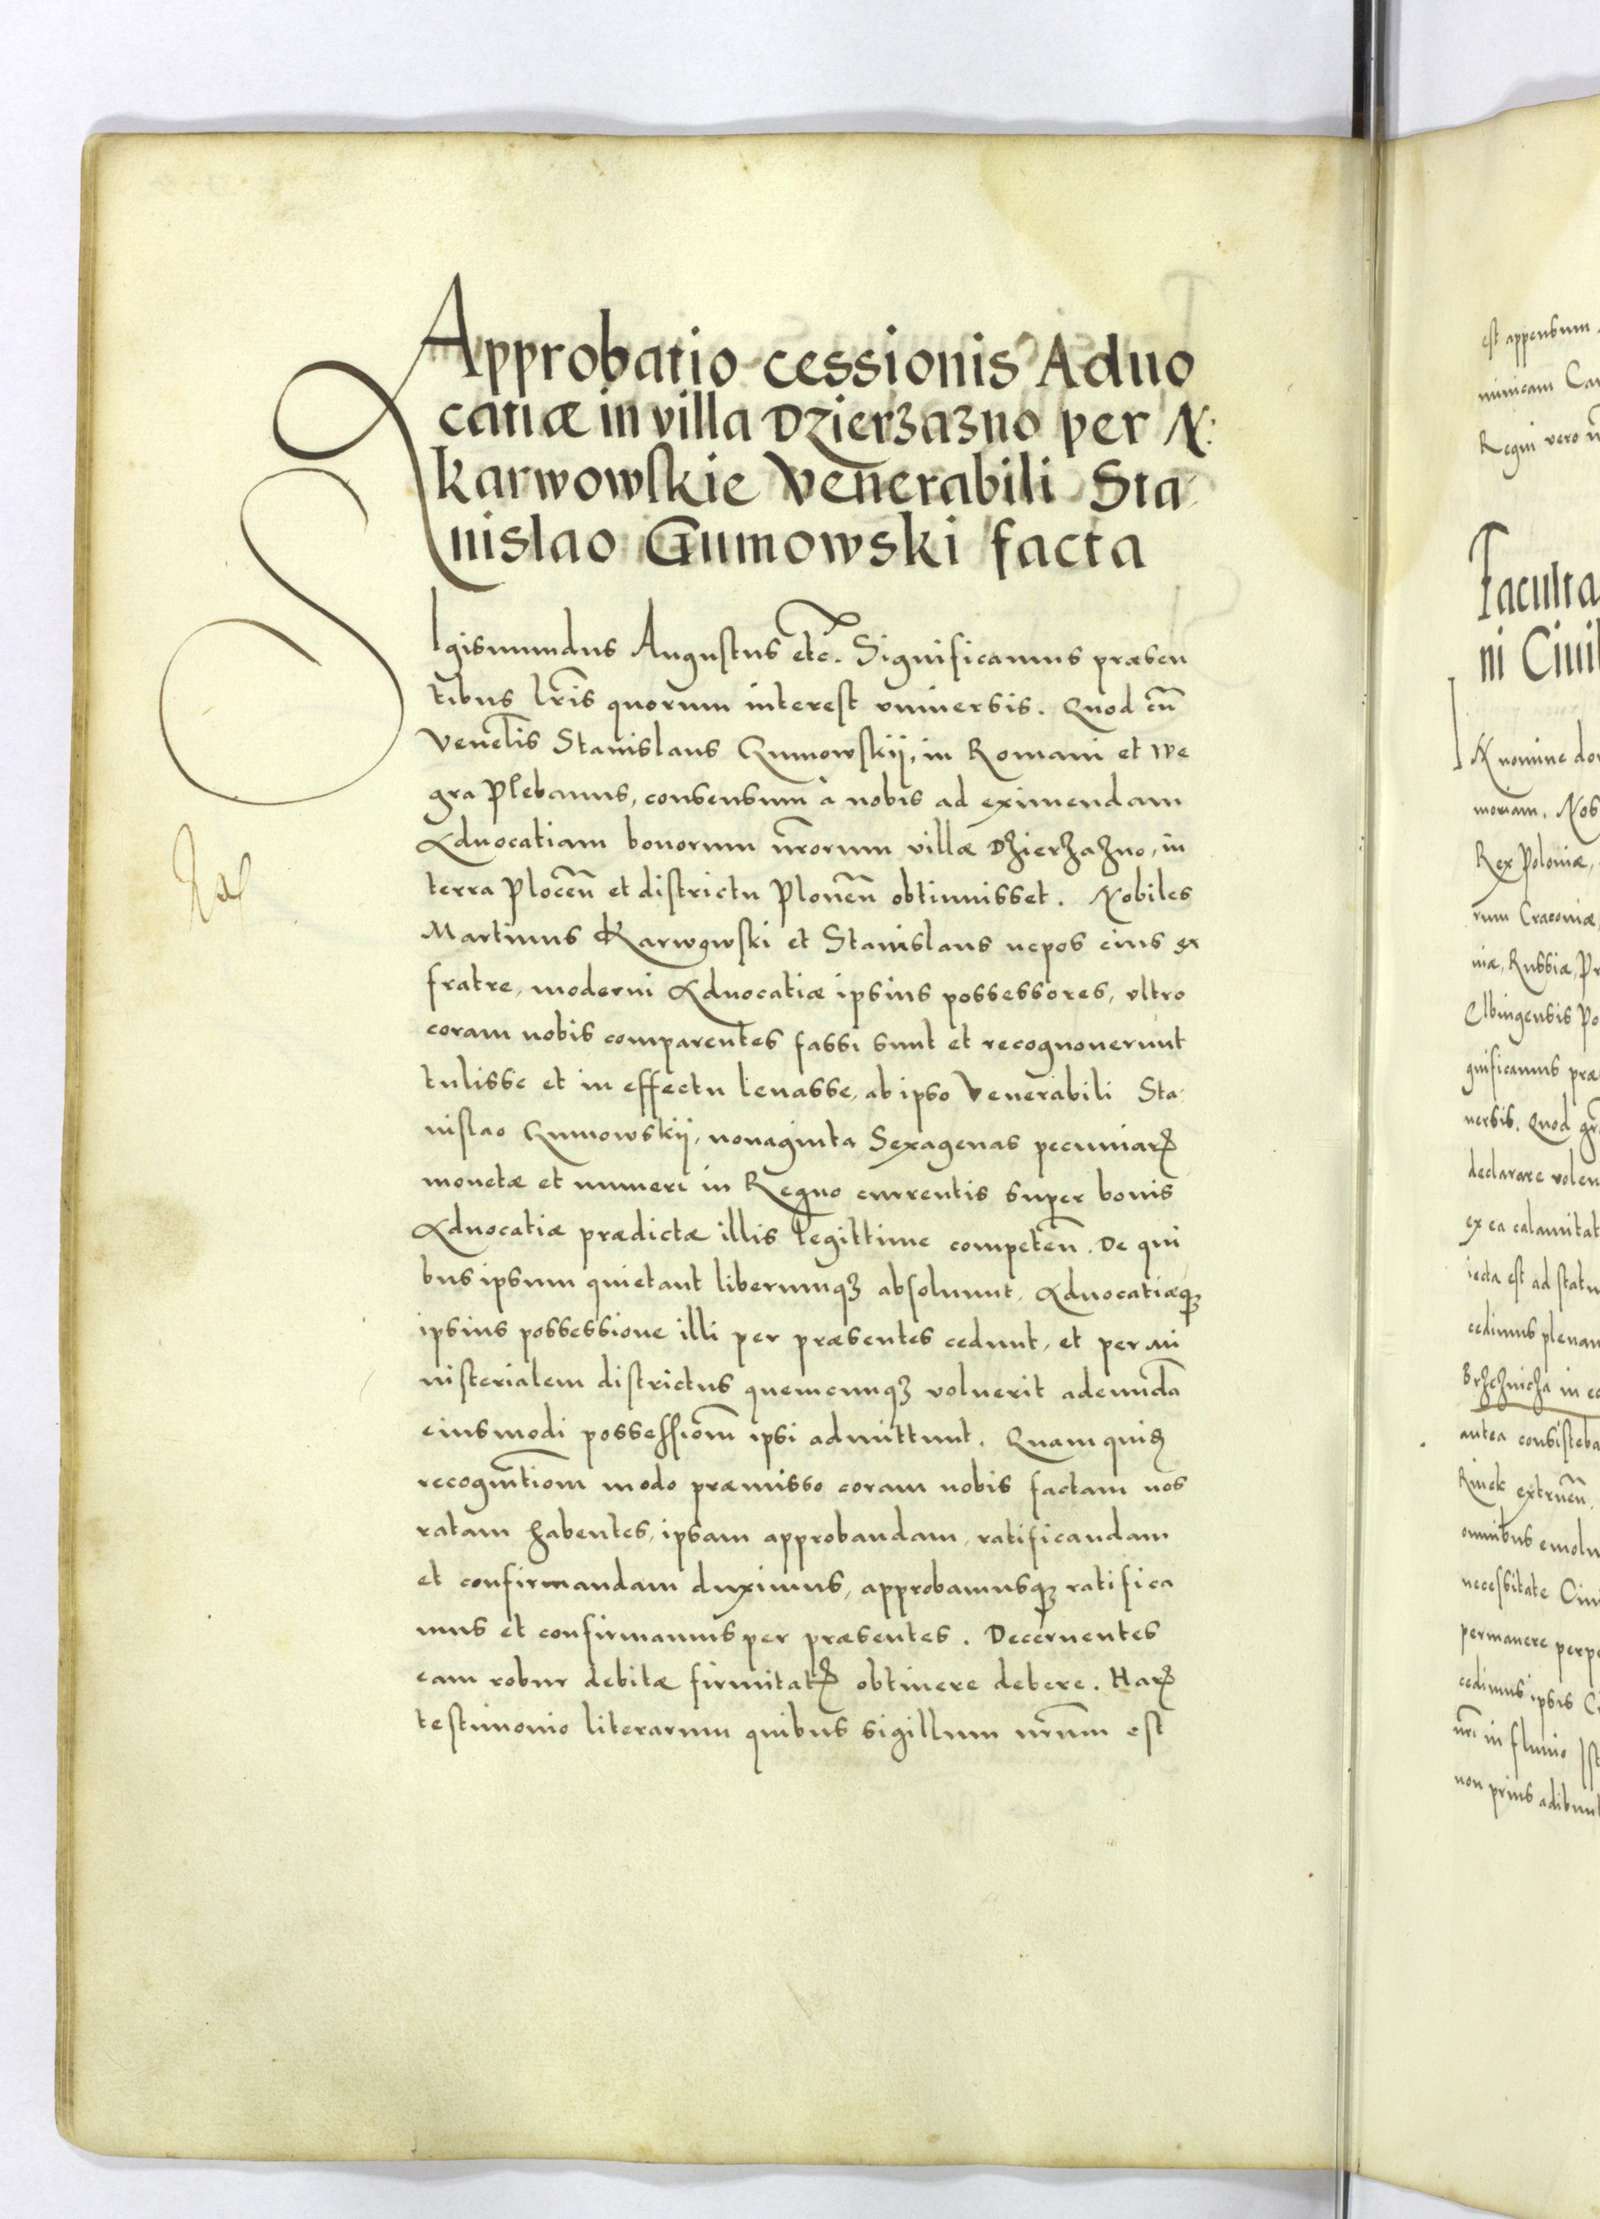 Approbatio cessionis Aduo
catiæ in villa Dzierzazno per N:
karwowskie Venerabili Sta
nislao Gumowski facta
SIgismundus Augustus etc. Significamus præsen
tibus lris quorum interest vniuersis. Quod cu̅
Venelis Stanislaus Gumowskij, in Romani et We
gra Plebanus, consensum à nobis ad eximendam
Aduocatiam bonorum nrorum villæ Dzierzazno, in
terra Plocen̅ et districtu Plonen̅ obtinuisset. Nobiles
Martinus Karwowski et Stanislaus nepos eius ex
fratre, moderni Aduocatiæ ipsius possessores, vltro
coram nobis comparentes fassi sunt et recognouerunt
tulisse et in effectu leuasse, ab ipso Venerabili Sta
nislao Gumowskij, nonaginta Sexagenas pecuniarꝝ
monetæ et numeri in Regno currentis super bonis
Aduocatiæ prædictæ illis legittime competen̅. De qui
bus ipsum quietant liberumqꝫ absoluunt, Aduocatiæqꝫ
ipsius possessione illi per præsentes cedunt, et per mi
nisterialem districtus quemcunqꝫ voluerit adeunda̅
eiusmodi possessiom̅ ipsi admittunt. Quam quidē
recognitiom̅ modo præmisso coram nobis factam nos
ratam habentes, ipsam approbandam, ratificandam
et confirmandam duximus, approbamusqꝫ ratifica
mus et confirmamus per præsentes. Decernentes
eam robur debitæ firmitatꝭ obtinere debere. Harꝝ
testimonio literarum quibus sigillum nrum est
est appensum
minicam
Regni vero
Faculta
ni Ciui
IN nomine do
moriam. Nos
Rex Poloniæ,
rum Cracouiæ,
uiæ, Russiæ, Pr
Elbingensis Po
gnificamus præ
uersis. Quod
declarare volen
ex ea calamitat
iecta est ad statu
cedimus plenam
Brzeznicza in
antea consisteba
Rinek extruen̅
omnibus emolu
necessitate Ciui
permanere perpe
cedimus ipsis Ci
nri in fluuio
non prius adibunt